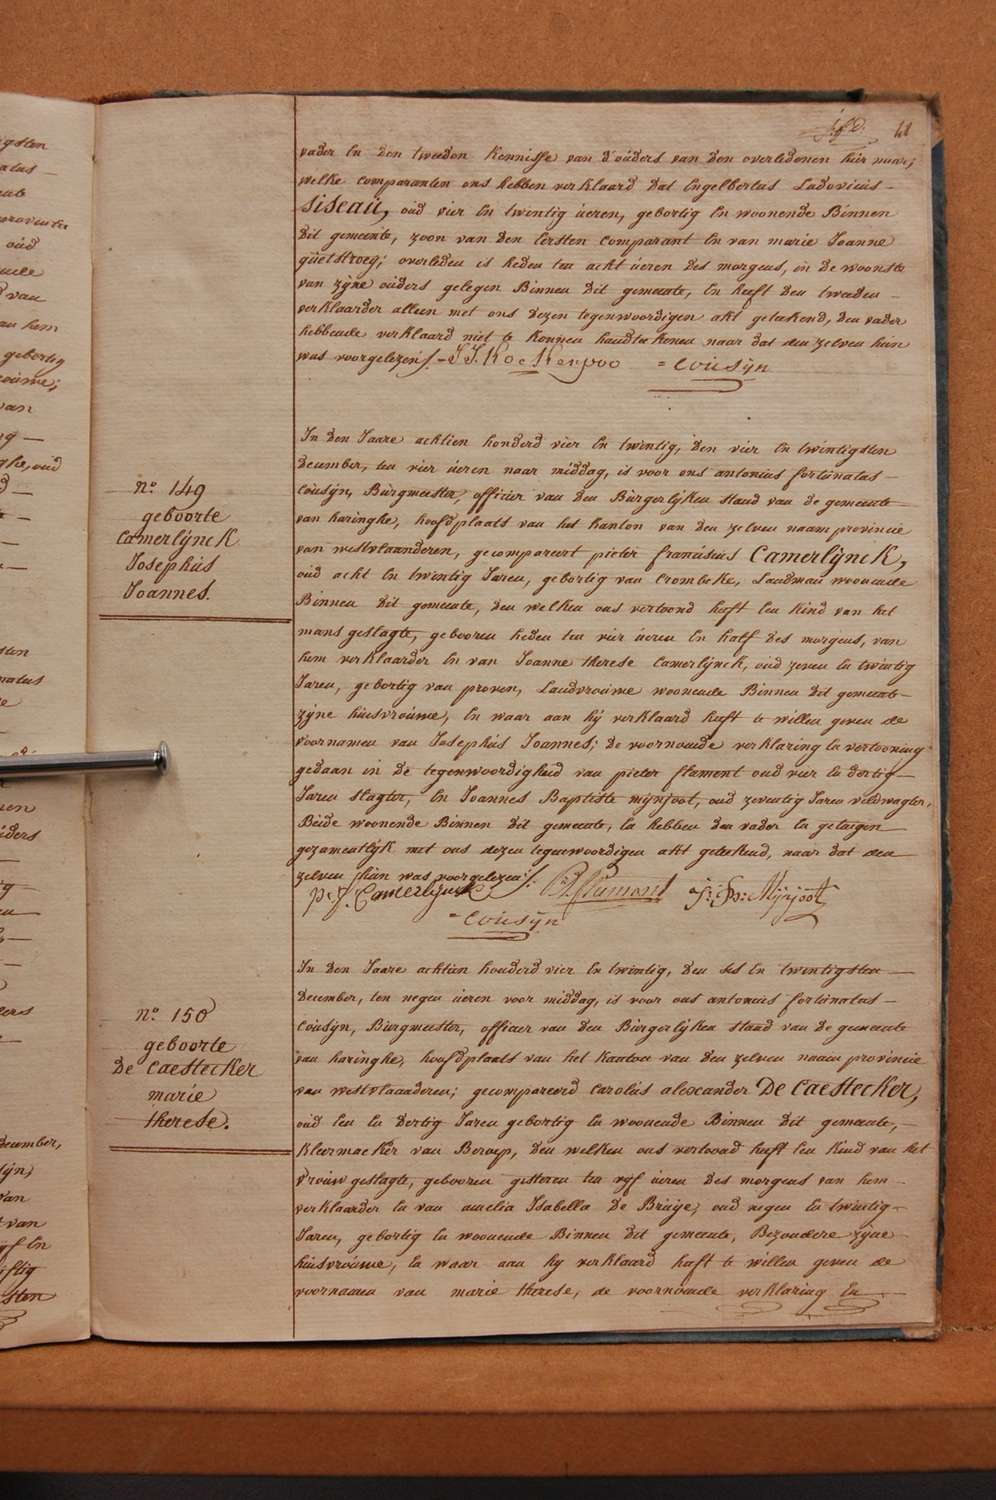 41
vader En den tweeden kennisse van d'ouders van den overledenen hier naar;
welke comparanten ons hebben verklaard dat Engelbertus Ludovicus
Siseau, oud vier En twintig ueren, gebortig En woonende Binnen
dit gemeente, zoon van den Eersten comparant En van marie Joanne
overleden is heden ten acht ueren des morgens, in de woonste
van zijne ouders gelegen Binnen dit gemeente, En heeft den tweeden
verklaarder alleen met ons dezen tegenwoordigen akt geteekend, den vader
hebbende verklaard niet te konnen handteekenen naar dat den zelven hun
was voorgelezen/.
= Cousijn
In den Jaare achtien honderd vier En twintig, den vier En twintigsten
december, ten vier ueren naar middag, is voor ons antonius fortunatus
Cousijn, Burgmeester, officier van den Burgerlijken stand van de gemeente
van haringhe, hoofdplaats van het kanton van den zelven naam provincie
van westvlaanderen, gecompareert pieter franciscus Camerlijnck,
oud acht En twintig Jaren, gebortig van Crombeke, Landman woonende
Binnen dit gemeente, den welken ons vertoond heeft Een kind van het
mans geslagte, gebooren heden ten vier ueren En half des morgens, van
hem verklaarder En van Joanne therese Camerlijnck, oud zeven En twintig
Jaren, gebortig van proven, Landvrouwe woonende Binnen dit gemeente
zijne huisvrouwe, En waar aan hij verklaard heeft te willen geven de
voornamen van Josephus Joannes; de voornoemde verklaring En vertooning
gedaan in de tegenwoordigheid van pieter flament oud vier En dertig
Jaren slagter, En Joannes Baptiste mijnjoot, oud zeventig Jaren veldwagter,
Beide woonende Binnen dit gemeente, En hebben den vader En getuigen
gezamentlijk met ons dezen tegenwoordigen akt geteekend, naar dat den
zelven hun was voorgelezen/.
P. f. Camerlijnck
J: Bp: Mijnjoot
= Cousijn
n.o 149
geboorte
Camerlijnck
Josephus
Joannes.
In den Jaare achtien honderd vier En twintig, den ses En twintigsten
december, ten negen ueren voor middag, is voor ons antonius fortunatus
Cousijn, Burgmeester, officier van den Burgerlijken stand van de gemeente
van haringhe, hoofdplaats van het kanton van den zelven naam provincie
van westvlaanderen; gecompareerd Carolus alexander De Caestecker,
oud Een En dertig Jaren gebortig En woonende Binnen dit gemeente,
kleermaeker van Beroep, den welken ons vertoond heeft Een kind van het
vrouw geslagte, gebooren gisteren ten vijf ueren des morgens van hem
verklaarder En van amelia Isabella De Bruije, oud negen En twintig
Jaren, gebortig En woonende Binnen dit gemeente, Bezondere zijne
huisvrouwe, En waar aan hij verklaard heeft te willen geven de
voornamen van marie therese, de voornoemde verklaring En
n.o 150
geboorte
De Caestecker
marie
therese.